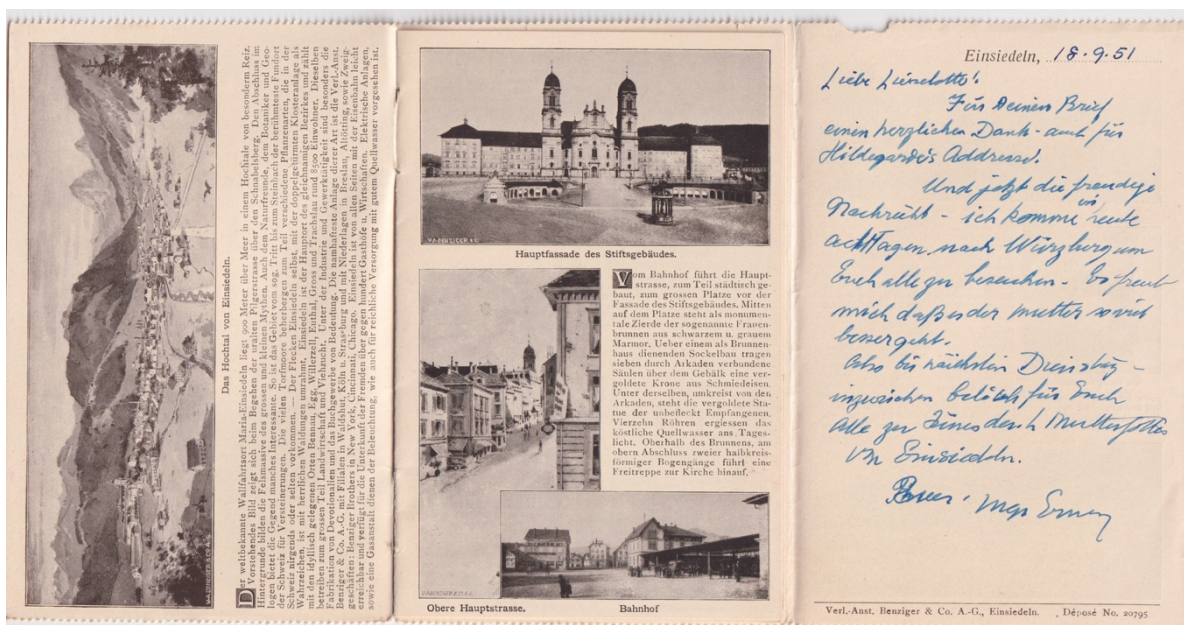 Das Hochtal von Einsiedeln.
Der weltbekannte Wallfahrtsort Maria-Einsiedeln liegt 900 Meter über Meer in einem Hochtale von besonderm Reiz.
Vorstehendes Bild zeigt sich beim Begehen der uralten Pilgerstrasse über den Schnabelsberg. Den Abschluss im
Hintergrunde bilden die Felsmassive des grossen und kleinen Mythen. Auch dem Naturfreunde, dem Botaniker und Geo-
logen bietet die Gegend manches Interessante. So ist das Gebiet vom sog. Tritt bis zum Steinbach der berühmteste Fundort
der Schweiz für Versteinerungen. Die vielen Torfmoore beherbergen zum Teil verschiedene Pflanzenarten, die in der
Schweiz nirgends oder selten vorkommen. — Der Flecken Einsiedeln selbst, mit der doppelgetürmten Klosteranlage als
Wahrzeichen, ist mit herrlichen Waldungen umrahmt. Einsiedeln ist der Hauptort des gleichnamigen Bezirkes und zählt
mit den idyllisch gelegenen Orten Bennau, Egg, Willerzell, Euthal, Gross und Trachslau rund 8500 Einwohner. Dieselben
betreiben zum grossen Teil Landwirtschaft und Viehzucht. Unter der Industrie und Gewerktätigkeit sind besonders die
Fabrikation von Devotionalien und das Buchgewerbe von Bedeutung. Die namhafteste Anlage dieser Art ist die Verl.-Anst.
Benziger & Co. A.-G. mit Filialen in Waldshut, Köln u. Strassburg und mit Niederlagen in Breslau, Altötting, sowie Zweig-
geschäften: Benziger Brothers in New York, Cincinnati, Chicago. Einsiedeln ist von allen Seiten mit der Eisenbahn leicht
erreichbar und verfügt für die Unterkunft der Fremden über gegen hundert Gasthöfe u. Wirtschaften. Elektrische Anlagen,
sowie eine Gasanstalt dienen der Beleuchtung, wie auch für reichliche Versorgung mit gutem Quellwasser vorgesehen ist.
Hauptfassade des Stiftsgebäudes.
Vom Bahnhof führt die Haupt-
strasse, zum Teil städtisch ge-
baut, zum grossen Platze vor der
Fassade des Stiftsgebäudes. Mitten
auf dem Platze steht als monumen-
tale Zierde der sogenannte Frauen-
brunnen aus schwarzem u. grauem
Marmor. Ueber einem als Brunnen-
haus dienenden Sockelbau tragen
sieben durch Arkaden verbundene
Säulen über dem Gebälk eine ver-
goldete Krone aus Schmiedeisen.
Unter derselben, umkreist von den
Arkaden, steht die vergoldete Sta-
tue der unbefleckt Empfangenen.
Vierzehn Röhren ergiessen das
köstliche Quellwasser ans Tages-
licht. Oberhalb des Brunnens, am
obern Abschluss zweier halbkreis-
förmiger Bogengänge führt eine
Freitreppe zur Kirche hinauf.
Obere Hauptstrasse.
Bahnhof
Einsiedeln, 18.9.51
Liebe Lieselotte!
Für Deinen Brief
einen herzlichen Dank - auch für
Hildegard's Addresse.
Und jetzt die freudige
Nachricht - ich komme heute
in acht Tagen nach Würzburg um
Euch alle zu besuchen - Es freut
mich daß es der Mutter so viel
besser geht.
Also bis nächsten Dienstag -
inzwischen für Euch
alle zu der Muttergottes
von Einsiedeln.
Verl.-Anst. Benziger & Co. A.-G., Einsiedeln. Déposé No. 20795